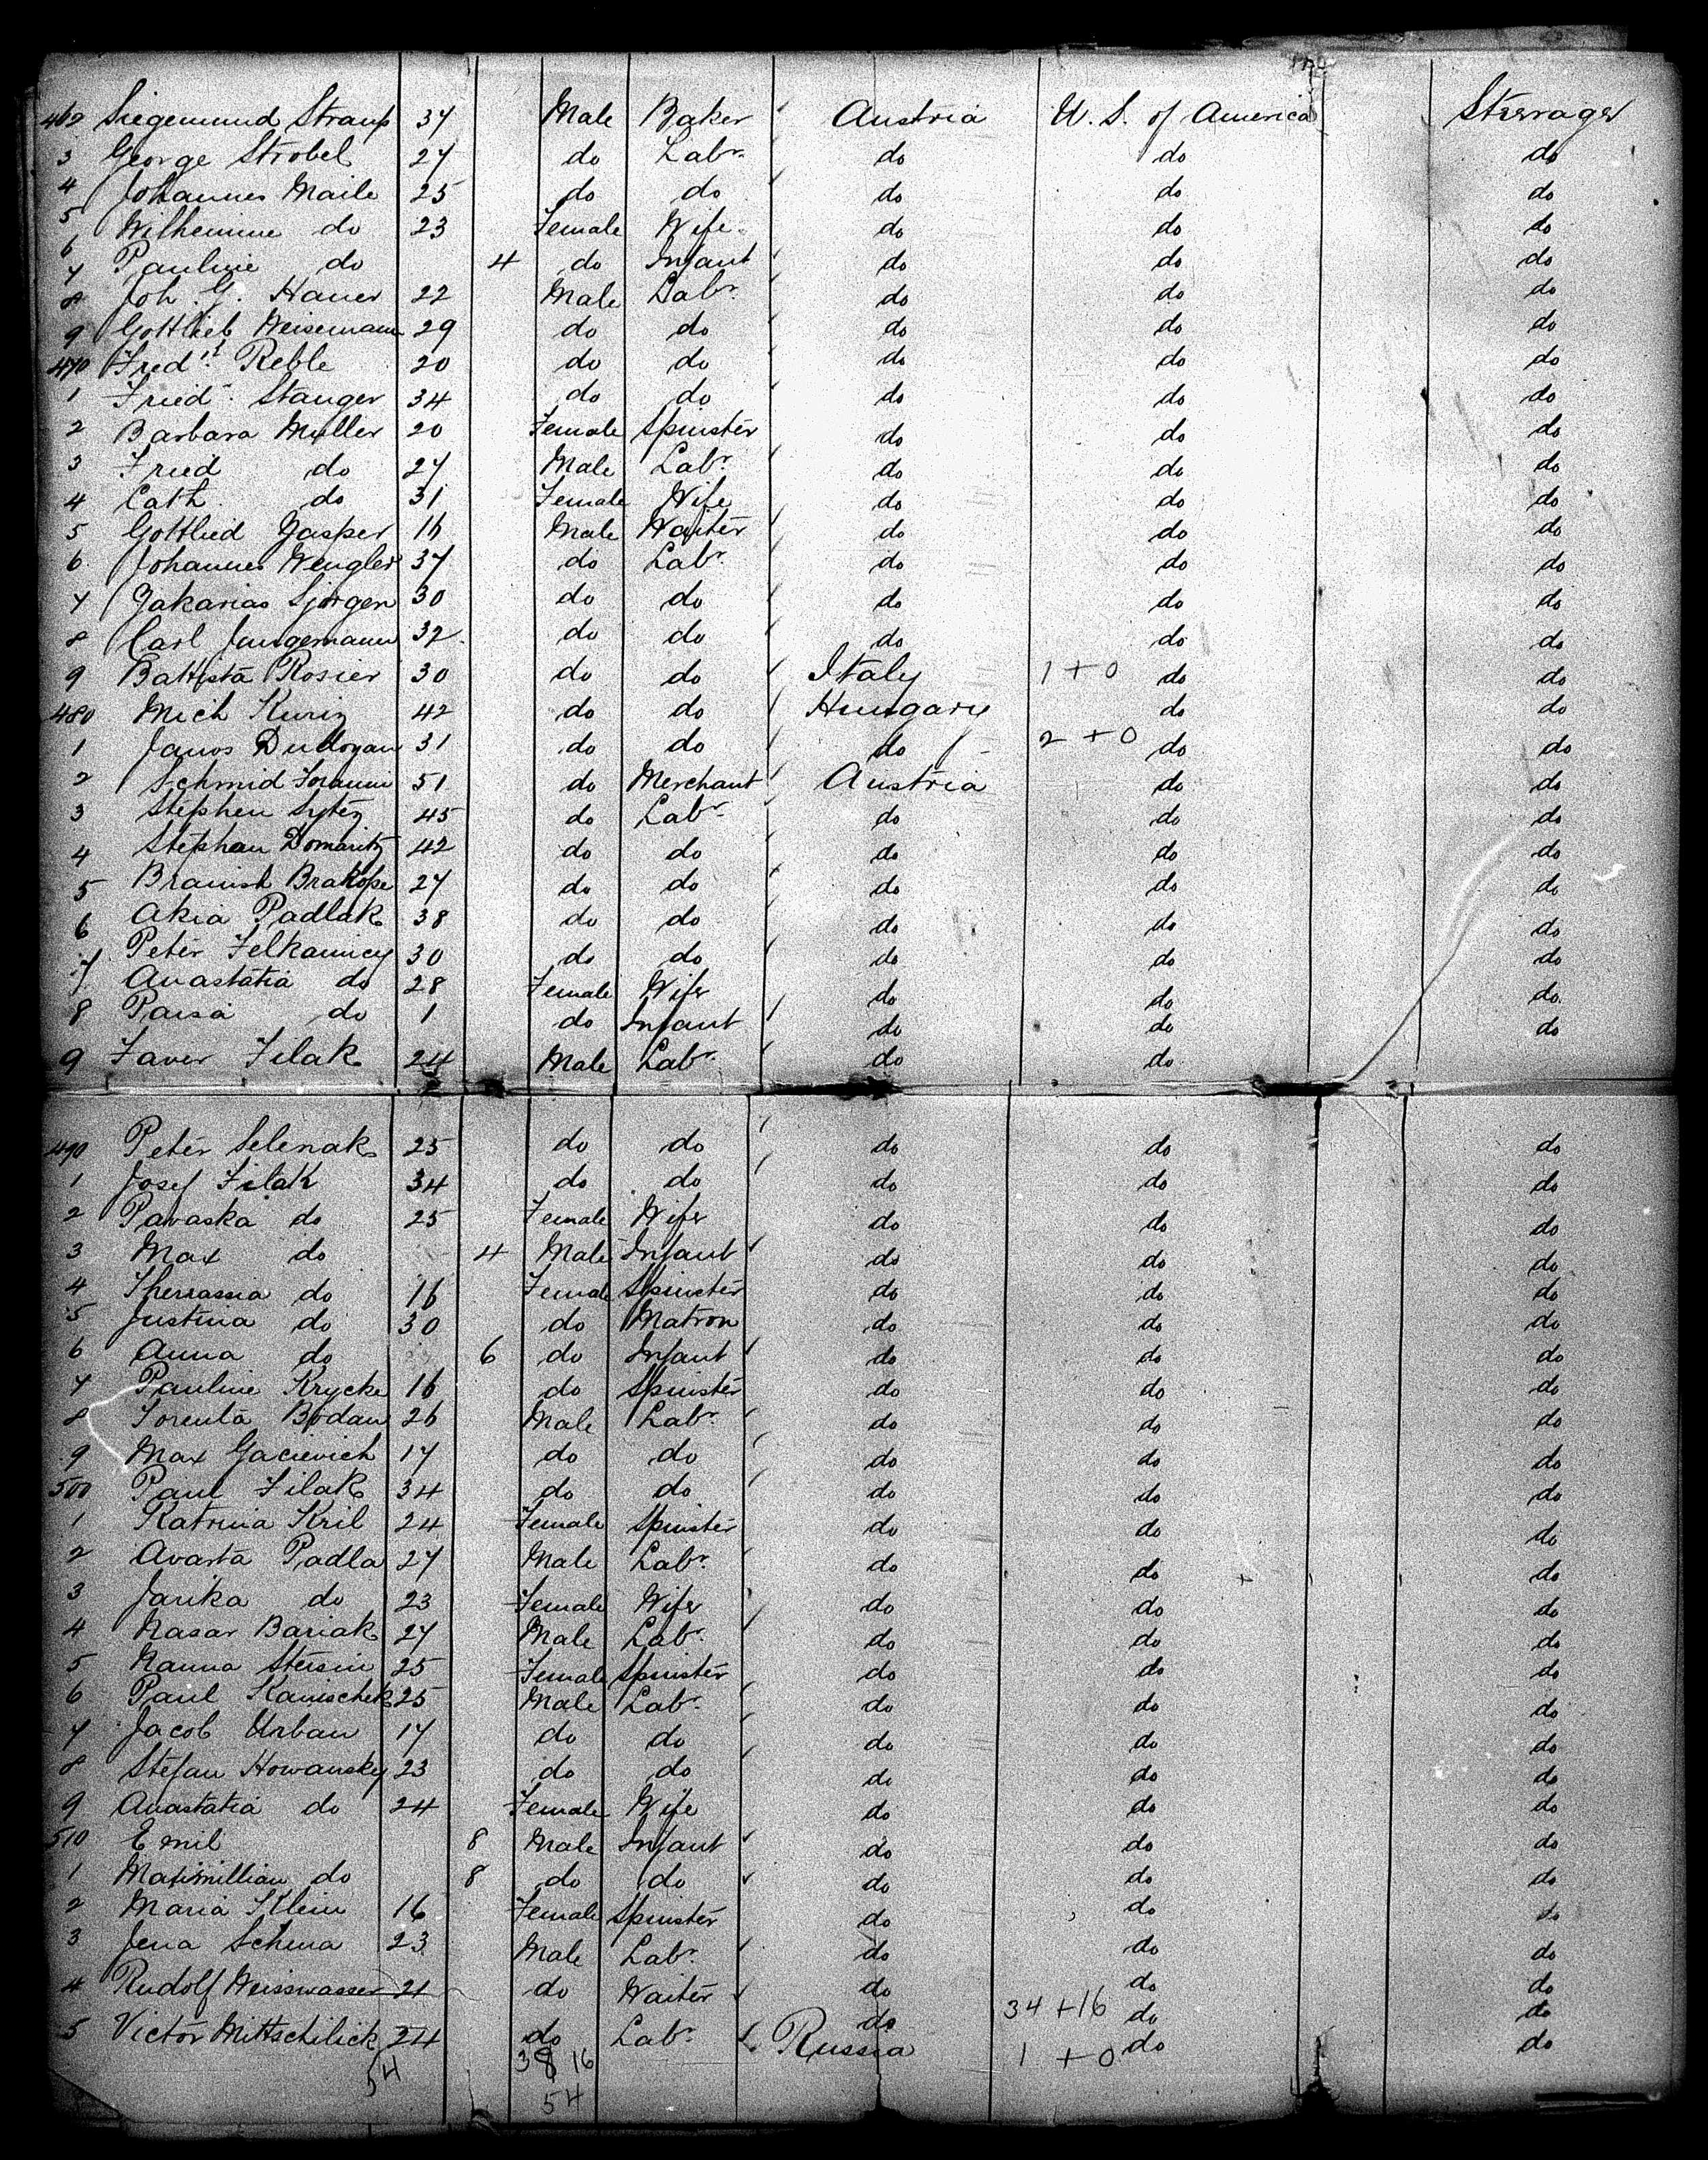 462 Siegemund Straup 37 Male Baker Austria U. S. of America Steerage
3 George Strobel 27 do Labr. do do do
4 Johannes Maile 25 do do do do do
5 Wilhemine do 23 Female Wife do do do
6 Pauline do 4 do Infant do do do
7 Joh. G. Hauer 22 Male Labr. do do do
8 Gottlieb Weisemann 29 do do do do do
9 Fred. Reble 20 do do do do do
470 Fried. Stanger 34 do do do do do
1 Barbara Muller 20 Female Spinster do do do
2 Fried do 27 Male Labr. do do do
3 Cath. do 31 Female Wife do do do
4 Gottlied Gasper 16 Male Waiter do do do
5 Johannes Wengler 37 do Labr. do do do
6 Zakarias Sjorgen 30 do do do do do
7 Carl Jungemann 32 do do do do do
8 Battista Rosier 30 do do Italy 1 + 0 do do
9 Mich Kuriz 42 do do Hungary do do
480 Janos 31 do do do 2 + 0 do do
1 Schmid 51 do Merchant Austria do do
2 Stephen 45 do Labr. do do do
3 Stephan Domaritz 42 do do do do do
4 27 do do do do do
5 Akia Padlak 38 do do do do do
6 Peter 30 do do do do do
7 Anastatia do 28 Female Wife do do do
8 Parsa do 1 do Infant do do do
9 Xaver Filak 24 Male Labr. do do
490 Peter Selenak 25 do do do do do
1 Josef Filak 34 do do do do do
2 Pavaska do 25 Female Wife do do do
3 Max do 4 Male Infant do do do
4 Therrassia do 16 Female Spinster do do do
5 Justina do 30 do Matron do do do
6 Anna do 6 do Infant do do do
7 Pauline Krycke 16 do Spinster do do do
8 Bodan 26 Male Labr. do do do
9 Max Gacievich 17 do do do do do
500 Paul Filak 34 do do do do do
1 Katrina Kril 24 Female Spinster do do do
2 Avasta Padla 27 Male Labr. do do do
3 Jarika do 23 Female Wife do do do
4 Nasar Bariak 27 Male Labr. do do do
5 Nanna 25 Female Spinster do do do
6 Paul Kanischek 25 Male Labr. do do do
7 Jacob Urban 17 do do do do do
8 Stefan Howansky 23 do do do do do
9 Anastatia do 24 Female Wife do do do
510 Emil 8 Male Infant do do do
1 Maximillian do 8 do do do do do
2 Maria Klein 16 Female Spinster do do do
3 Jena Schena 23 Male Labr. do do do
4 Rudolf Weisswasser 21 do Waiter do do do
do 34 + 16 do do
5 Victor Mittschilick 24 do Labr. Russia 1 + 0 do do
54 38 16
54